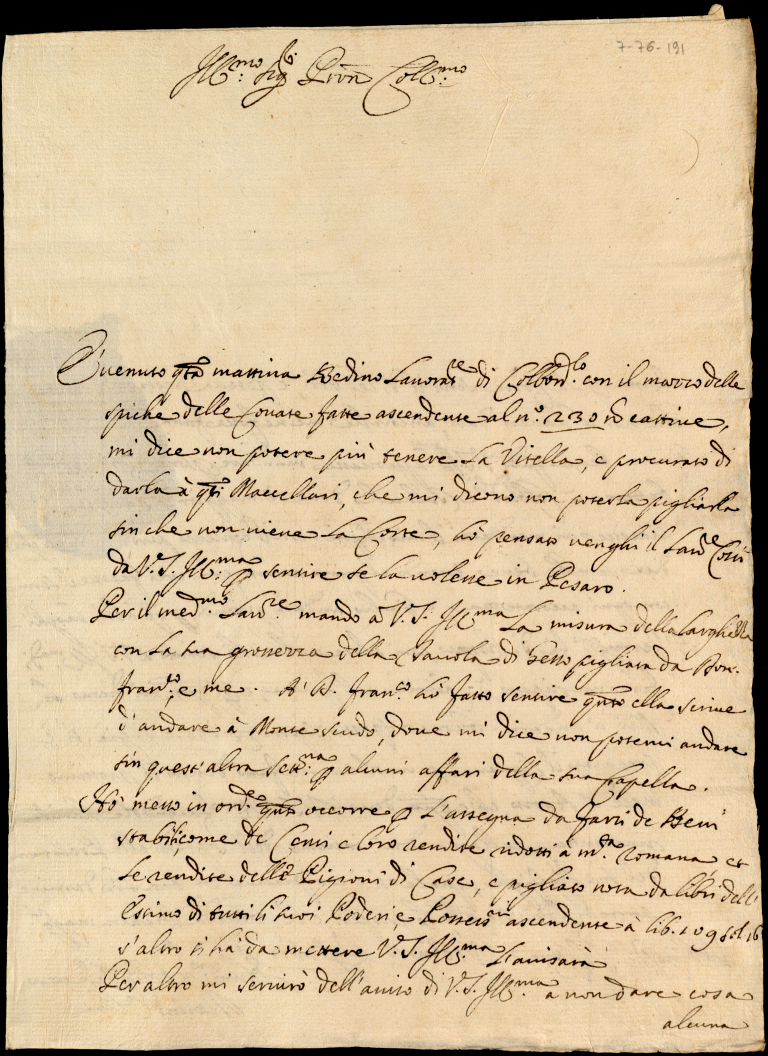 7-76-191
Ill:mo Sig:r Pron Coll:mo
È uenuto q:ta mattina Bedino Lauorat:re di Colbord:lo con il mazzo delle
spiche delle Couate fatte ascendente al n:o 230 cattiue,
mi dice non potere più tenere la Vitella, e procurato di
darla à q:ti Macellari, che mi dicono non poterla pigliarla
sin che non uiene la Corte, hò pensato uenghi il Lau:re
da V.S. Ill:ma p sentire se la uolesse in Pesaro.
Per il med:mo Lau:re mando a V.S. Ill:ma la misura della larghezza
con la sua grossezza della Tauola di Getto pigliata da Don.
Fran:co, e me. A D. Fran:co hò fatto sentire q:nto ella scriue
d'andare à Monte Scudo, doue mi dice non potermi andare
sin quest'altra Sett:na p alcuni affari della sua Capella.
Hò messo in ord:e q:nto occorre p l'assegna da farsi de Beni
stabili, come de Censi e loro rendite ridotti à m:ta romana et
le rendite delle Pigioni di Case, e pigliato nota da libri dell'
Estimo di tutti li suoi Poderi, e Possess:ni ascendente à lib. 109 sol 16
s'altro si hà da mettere V.S. Ill:ma l'auisarà
Per altro mi seruirò dell'auiso di V.S. Ill:ma a non dare cosa
alcuna